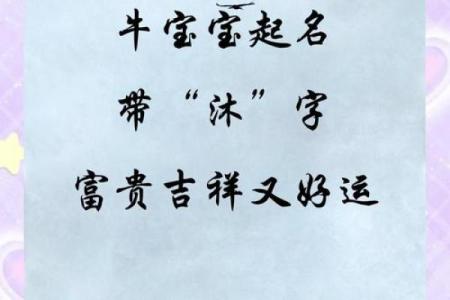 牛宝宝起名
带“沐”字
富贵吉祥又好运